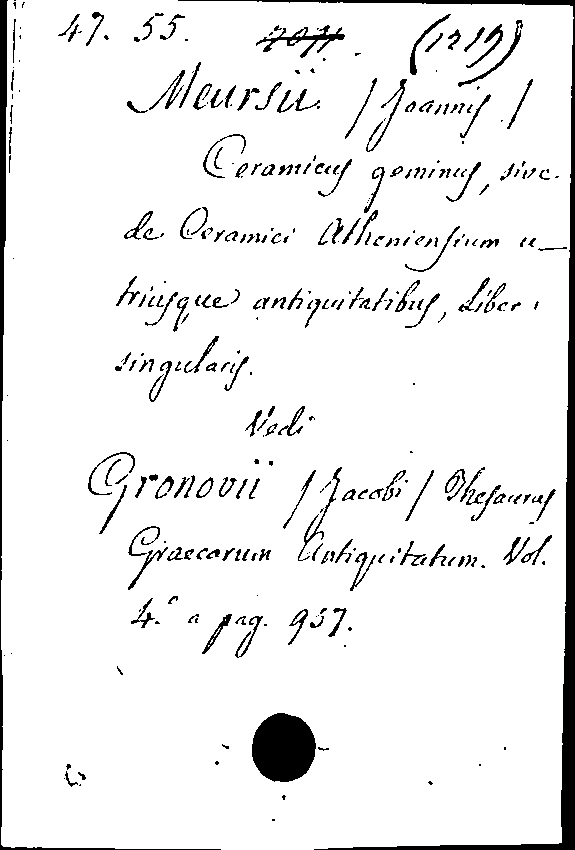 47. 55. (1219)
Meursii. / Joannis /
Ceramicus geminus, sive
de Ceramici Atheniensium u-
triusque antiquitatibus, Liber
singularis.
Vedi
Gronovii / Jacobi / Thesaurus
Graecarum Antiquitatum. Vol.
4.º a pag. 937.